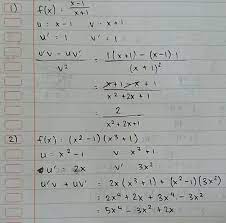 1) f(x) = x-1 / x+1
u = x-1 v = x+1
u' = 1 v' = 1
u'v - uv' / v² = 1(x+1) - (x-1)·1 / (x+1)²
= x+1 - x+1 / x²+2x+1
= 2 / x²+2x+1
2) f(x) = (x²-1)(x³+1)
u = x²-1 v x³+1
u' = 2x v' 3x²
u'v + uv' = 2x(x³+1) + (x²-1)(3x²)
= 2x⁴ + 2x + 3x⁴ - 3x²
= 5x⁴ - 3x² + 2x